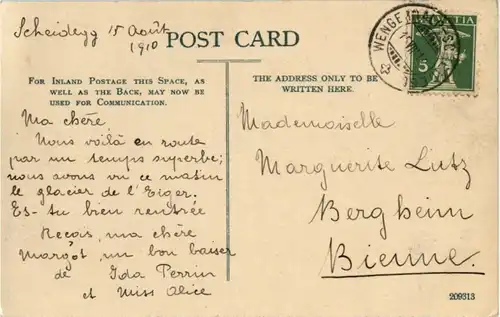 Scheidegg 15 Août
1910
POST CARD
FOR INLAND POSTAGE THIS SPACE, AS
WELL AS THE BACK, MAY NOW BE
USED FOR COMMUNICATION.
THE ADDRESS ONLY TO BE
WRITTEN HERE.
Ma chère
Nous voilà en route
par un temps superbe;
nous avons vu ce matin
le glacier de l'Eiger.
Es-tu bien rentrée
Reçois, ma chère
Margot, un bon baiser
de Ida Perrin
et Miss Alice
WENGE
HELVETIA
5
Mademoiselle
Marguerite Lutz
Bergheim
Bienne.
209313